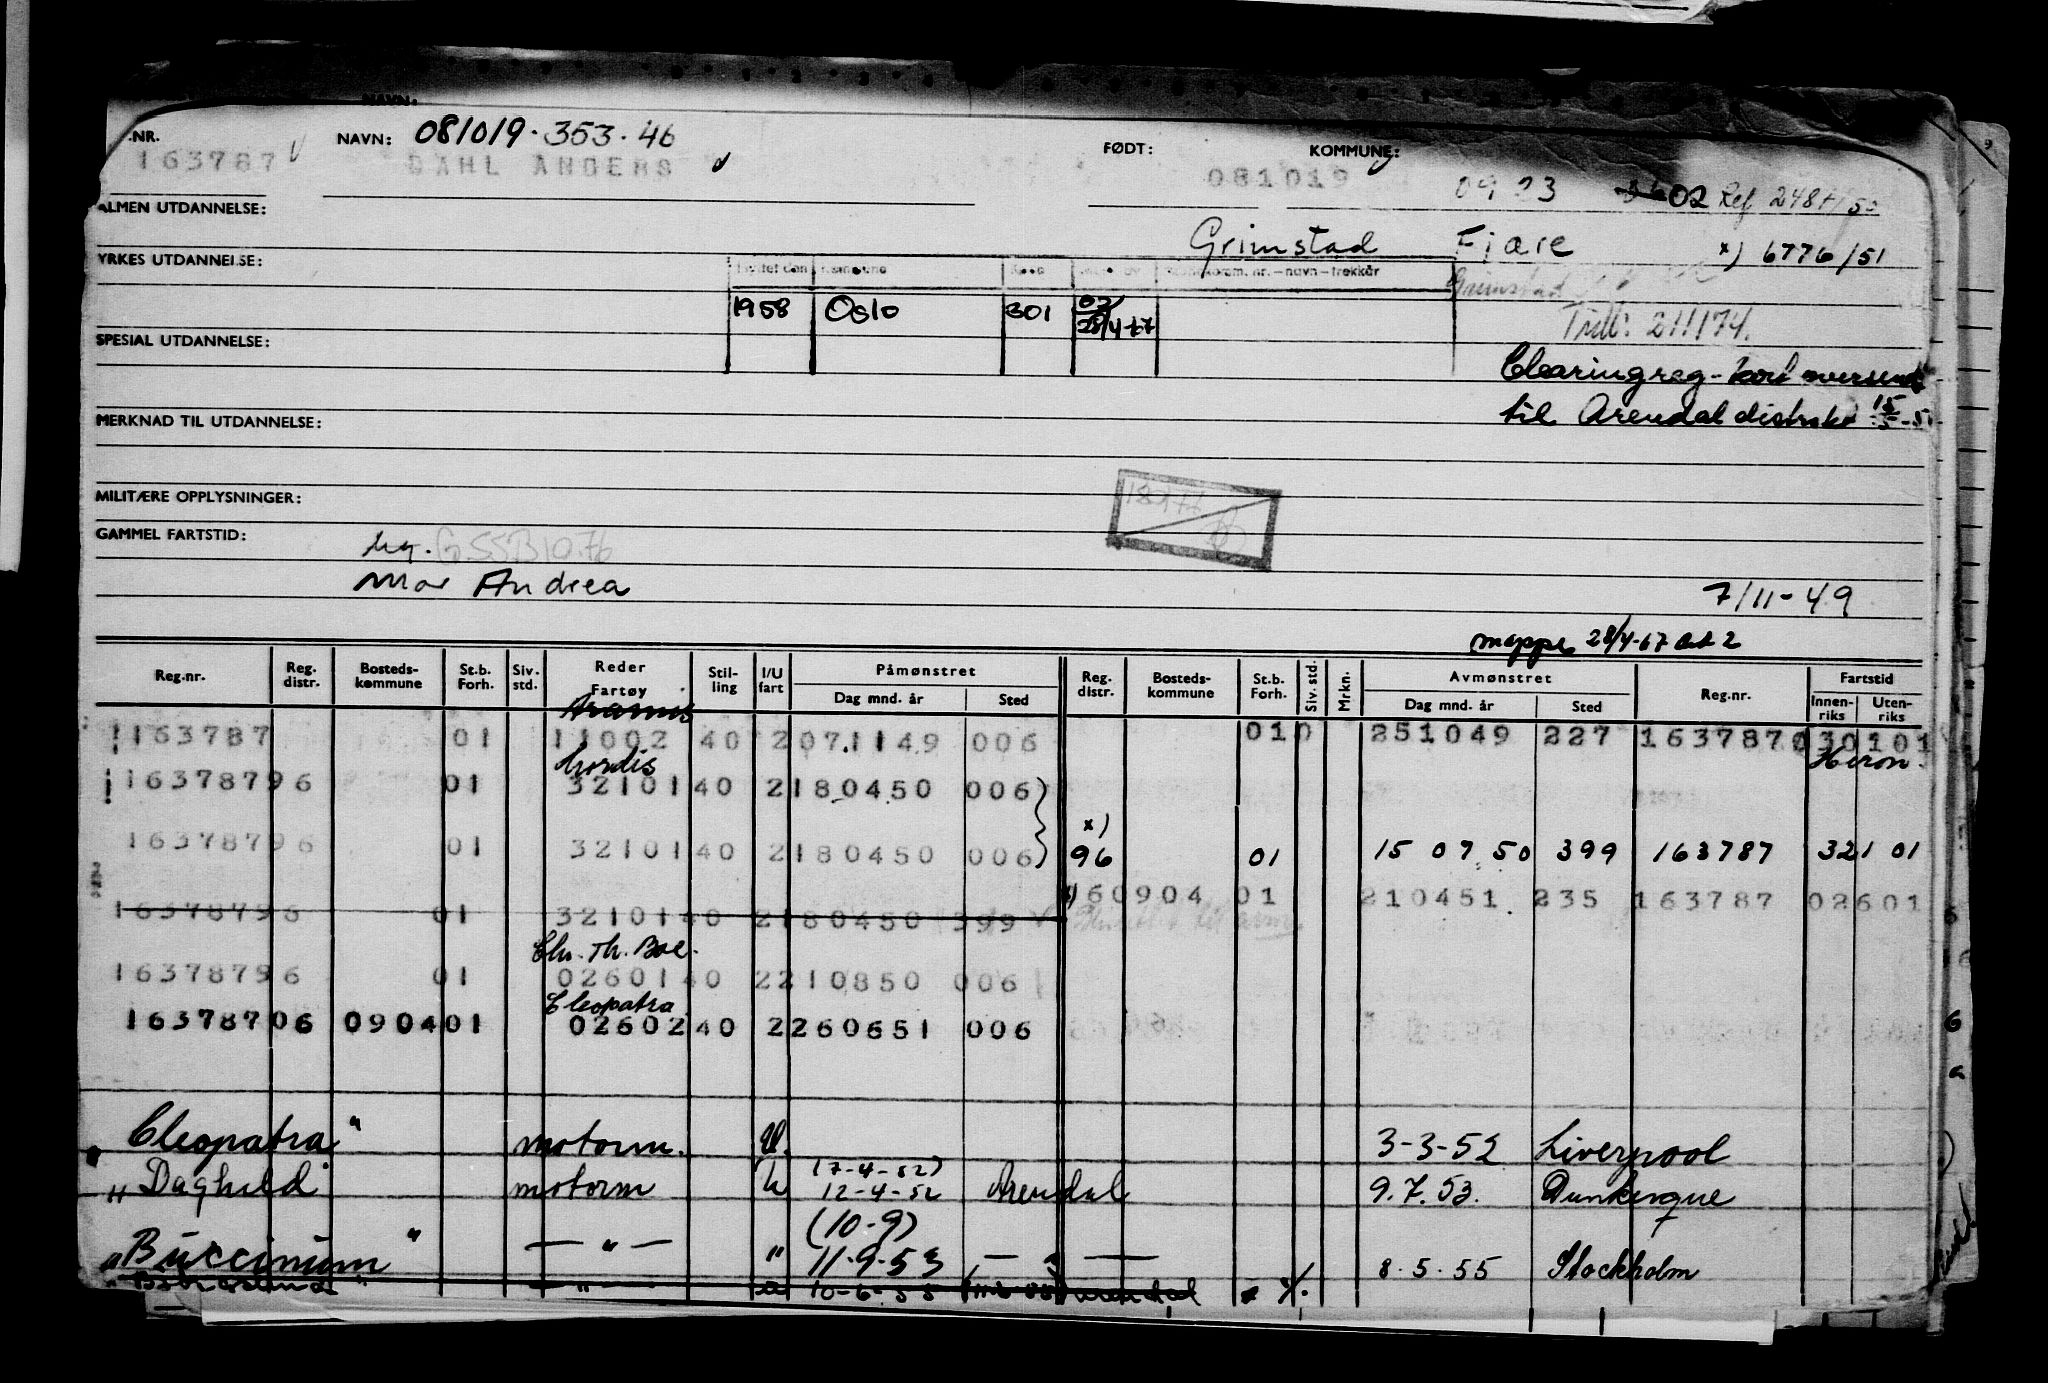 NAVN:
.NR. NAVN: 081019-353-46 FØDT: KOMMUNE:
163787 DAHL ANDERS 081019 02 Ref
ALMEN UTDANNELSE:
Grimstad Fjære x) 6776/51
YRKES UTDANNELSE: -navn-trekkår
Grimstad
1958 Oslo 301 28/4-77
211174.
SPESIAL UTDANNELSE:
Clearingreg-kort
til Arendal distrikt
MERKNAD TIL UTDANNELSE:
MILITÆRE OPPLYSNINGER:
GAMMEL FARTSTID:
Mor Andrea 7/11-49
mappe 28/4-67
Reg.nr. Reg. distr. Bosteds-kommune St.b. Forh. Siv. std. Reder Fartøy Stil-ling I/U fart Påmønstret Dag mnd. år Sted Reg. distr. Bosteds-kommune St.b. Forh. Siv. std. Mrkn. Avmønstret Dag mnd. år Sted Reg.nr. Fartstid Innen-riks Uten-riks
163787 01 11002 40 2 071149 006 010 251049 227 163787 030101
Heron.
163787 96 01 32101 40 2 180450 006
x)
163787 96 01 32101 40 2 180450 006 96 01 15 07 50 399 163787 321 01
60904 01 210451 235 163787 02601
163787 96 01 32101 40 2 180450 399
Chr. Th. Boe.
163787 96 01 02601 40 2 210850 006
Cleopatra
163787 06 0904 01 02602 40 2 260651 006
Cleopatra " motorm. U. 3-3-52 Liverpool
(7-4-52)
" Daghild motorm U 12-4-52 Arendal 9.7.53. Dunkerque
(10-9)
" Buccinum " — " — " 11-9-53 — " — 8.5.55 Stockholm
— " — 10-6-55 Arendal